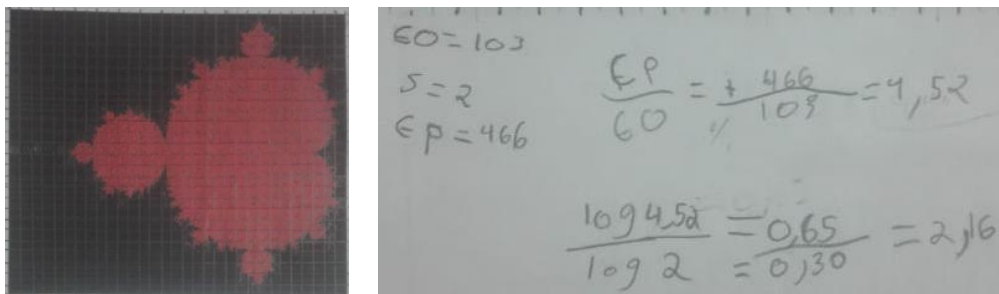 €0=103
S=2
€p=466
€P/60 = 466/109 = 4,52
log 4,52/log 2 = 0,65/0,30 = 2,16